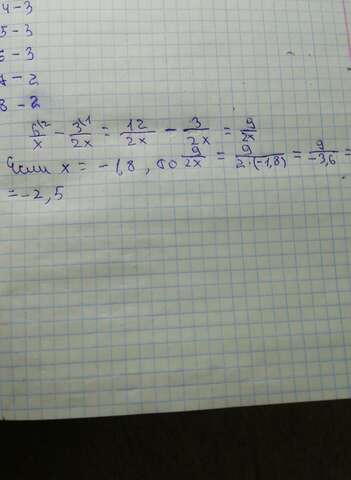 4 - 3
5 - 3
6 - 3
7 - 2
8 - 2
6\2/x - 3\1/2x = 12/2x - 3/2x = 9/2x
Если x = -1,8, то 9/2x = 9/2·(-1,8) = 9/-3,6 =
= -2,5